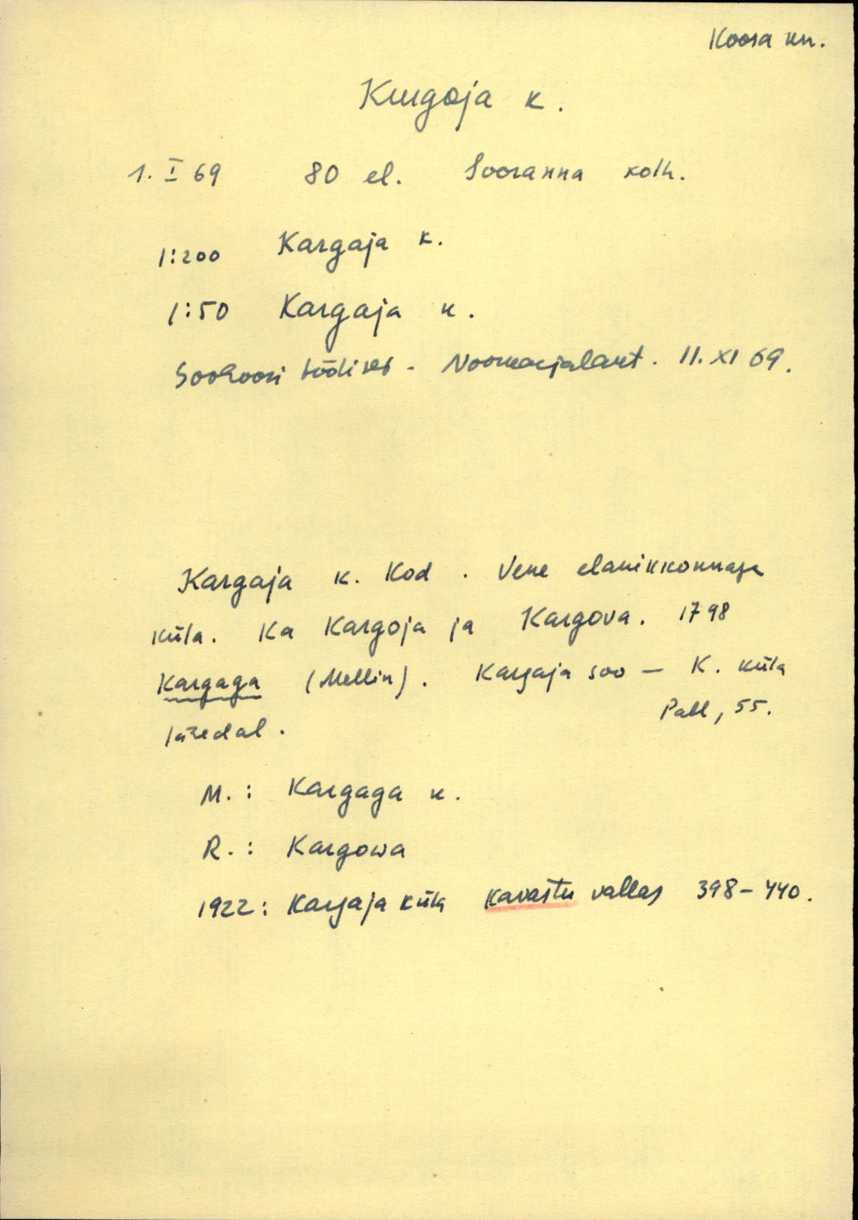 Koosa kn.
Kurgoja k.
1. I 69 80 el. Sooranna kolh.
1:200 Kargaja k.
1:50 Kargaja k.
Sookoosi Noomarjalart. 11. XI 69.
Kargaja k. Kod. Vene elanikkonnaga
küla. Ka Kargoja ja Kargova. 1798
Kargaga (Mellin). Kargaja soo — K. küla
Pall, 55.
lähedal.
M.: Kargaga k.
R.: Kargowa
1922: Kargaja küla Kavastu vallas 398–440.